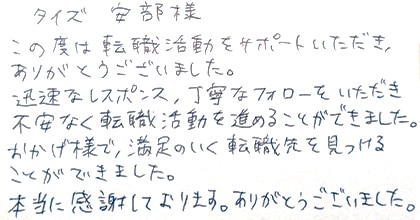 タイズ 安部様
この度は転職活動をサポートいただき、
ありがとうございました。
迅速なレスポンス、丁寧なフォローをいただき
不安なく転職活動を進めることができました。
おかげ様で、満足のいく転職先を見つける
ことができました。
本当に感謝しております。ありがとうございました。